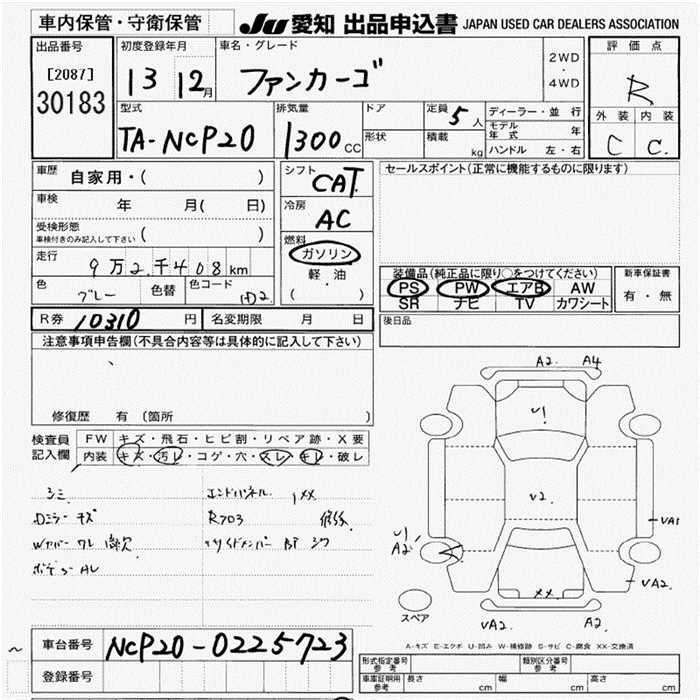 車内保管・守衛保管
JU 愛知 出品申込書 JAPAN USED CAR DEALERS ASSOCIATION
出品番号
[2087]
30183
初度登録年月
13 12月
車名・グレード
ファンカーゴ
2WD
・
4WD
評価点
R
外装 内装
C C.
型式
TA-NCP20
排気量
1300 CC
ドア
形状
定員 5人
積載 kg
ディーラー・並行
モデル年式 年
ハンドル 左・右
車歴 自家用・( )
車検 年 月( 日)
受検形態
車検付きのみ記入して下さい ( )
走行 9万2千408km
色 グレー 色替 色コード 1D2
シフト CAT.
冷房 AC
燃料
ガソリン
軽・油
( )
セールスポイント(正常に機能するものに限ります)
装備品(純正品に限り○をつけてください)
PS PW エアB AW
SR ナビ TV カワシート
新車保証書
有・無
R券 10310円 名変期限 月 日
後日品
注意事項申告欄(不具合内容等は具体的に記入して下さい)
修復歴 有 (箇所
検査員記入欄
FW キズ・飛石・ヒビ割・リペア跡・X要
内装 キズ・汚レ・コゲ・穴・スレ・キレ・破レ
シミ
Dミラー キズ
Wカバー ワレ 欠
ボデー AL
エンドパネル 1XX
R703 修復
リヤサイドメンバー BP シワ
A2 A4
U1
V2
XX
U1
A2
VA1
VA2
VA2 A2
スペア
A-キズ E-エクボ U-凹み W-補修跡 S-サビ C-腐食 XX-交換済
~
車台番号 NCP20-0225723
登録番号
形式指定番号 参考
類別区分番号 参考
車庫証明用 参考 長さ cm 幅 cm 高さ cm